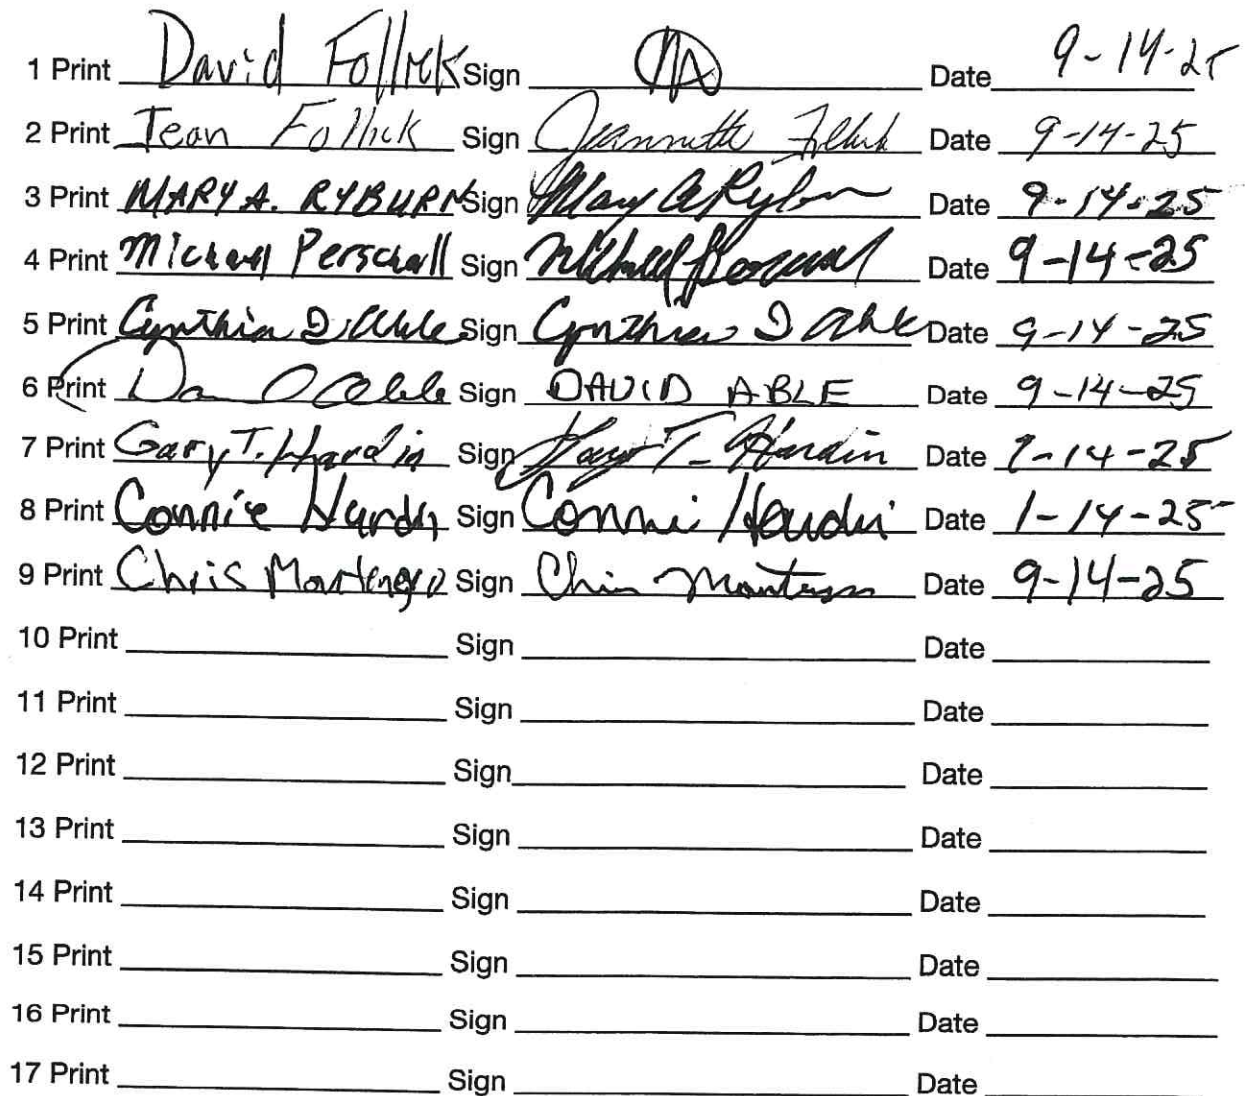 1 Print David Follick Sign Date 9-14-25
2 Print Jean Follick Sign Jeannette Follick Date 9-14-25
3 Print MARY A. RYBURN Sign Mary A Ryburn Date 9-14-25
4 Print Michael Perschall Sign Michael Perschall Date 9-14-25
5 Print Cynthia D. Able Sign Cynthia D Able Date 9-14-25
6 Print Able Sign DAVID ABLE Date 9-14-25
7 Print Gary T. Hardin Sign Gary T. Hardin Date 9-14-25
8 Print Connie Hardin Sign Connie Hardin Date 1-14-25
9 Print Chris Montenegro Sign Chris Date 9-14-25
10 Print Sign Date
11 Print Sign Date
12 Print Sign Date
13 Print Sign Date
14 Print Sign Date
15 Print Sign Date
16 Print Sign Date
17 Print Sign Date